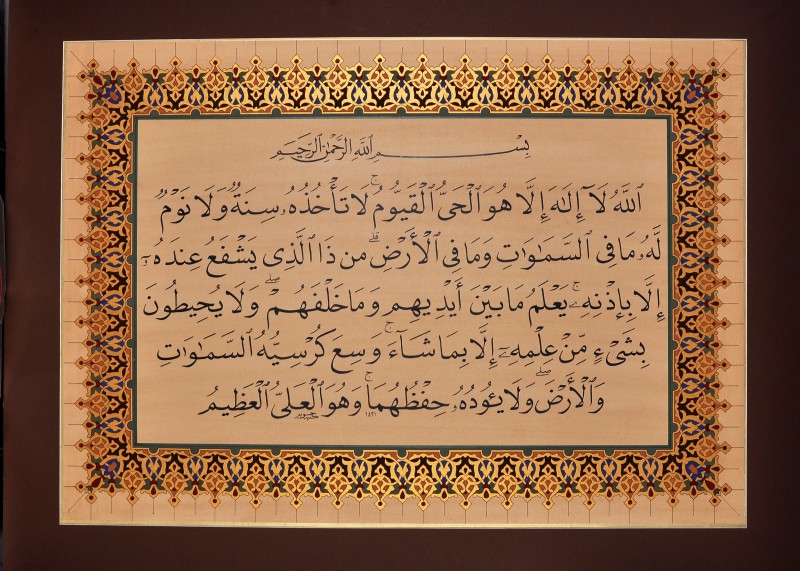 بِسْمِ ٱللَّهِ ٱلرَّحْمَٰنِ ٱلرَّحِيمِ
ٱللَّهُ لَآ إِلَٰهَ إِلَّا هُوَ ٱلْحَىُّ ٱلْقَيُّومُ ۚ لَا تَأْخُذُهُۥ سِنَةٌ وَلَا نَوْمٌ
لَّهُۥ مَا فِى ٱلسَّمَٰوَٰتِ وَمَا فِى ٱلْأَرْضِ ۗ مَن ذَا ٱلَّذِى يَشْفَعُ عِندَهُۥٓ
إِلَّا بِإِذْنِهِۦ ۚ يَعْلَمُ مَا بَيْنَ أَيْدِيهِمْ وَمَا خَلْفَهُمْ ۖ وَلَا يُحِيطُونَ
بِشَىْءٍ مِّنْ عِلْمِهِۦٓ إِلَّا بِمَا شَآءَ ۚ وَسِعَ كُرْسِيُّهُ ٱلسَّمَٰوَٰتِ
وَٱلْأَرْضَ ۖ وَلَا يَـُٔودُهُۥ حِفْظُهُمَا ۚ وَهُوَ ٱلْعَلِىُّ ٱلْعَظِيمُ